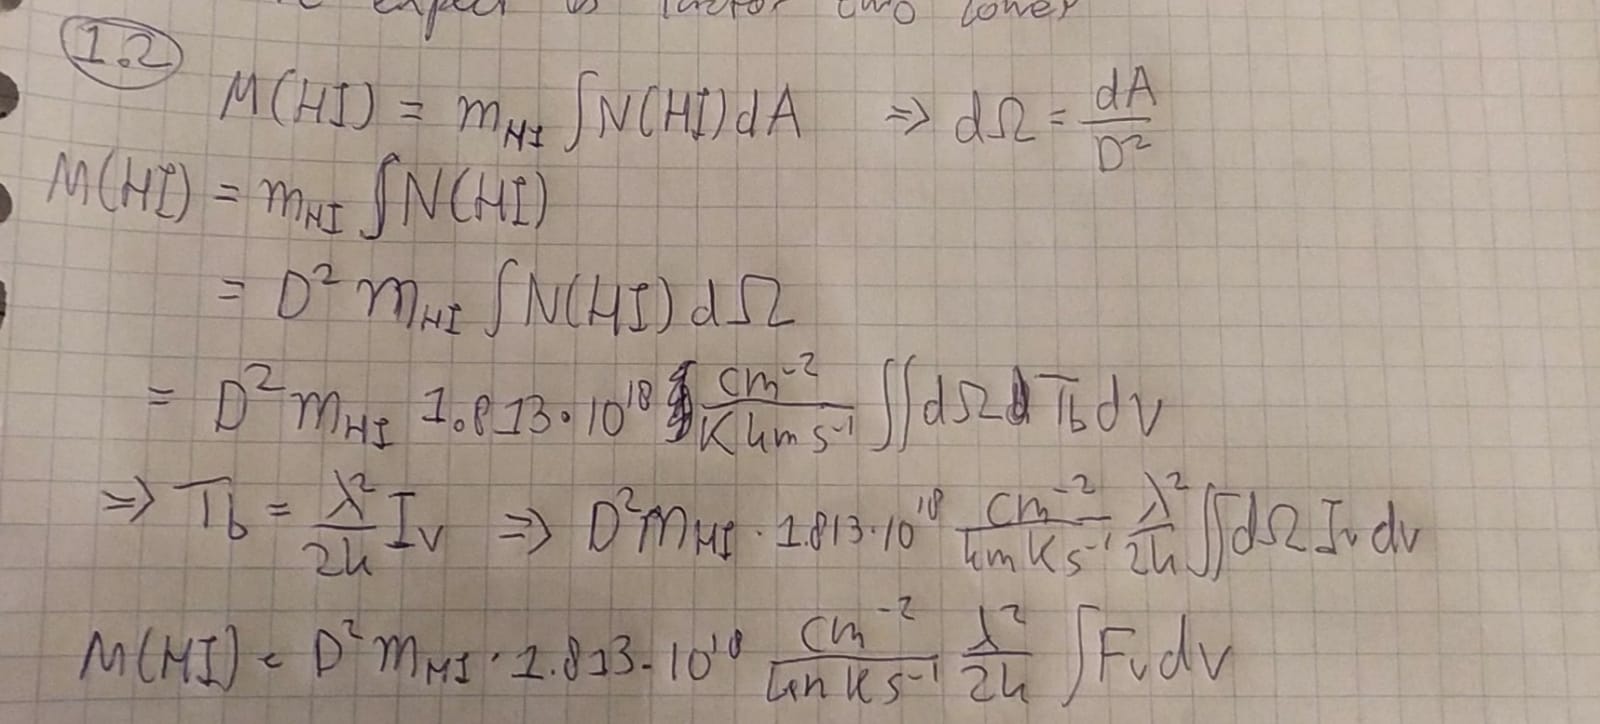 expect a factor two lower
1.2
M(HI) = m_HI ∫N(HI)dA => dΩ = dA/D²
M(HI) = m_HI ∫N(HI)
= D² m_HI ∫N(HI) dΩ
= D² m_HI 1.813·10¹⁸ cm⁻²/(K km s⁻¹) ∬dΩ T_b dv
=> T_b = λ²/2k I_ν => D² m_HI · 1.813·10¹⁸ cm⁻²/(km K s⁻¹) λ²/2k ∬dΩ I_ν dv
M(HI) = D² m_HI · 1.813·10¹⁸ cm⁻²/(km K s⁻¹) λ²/2k ∫F_ν dv